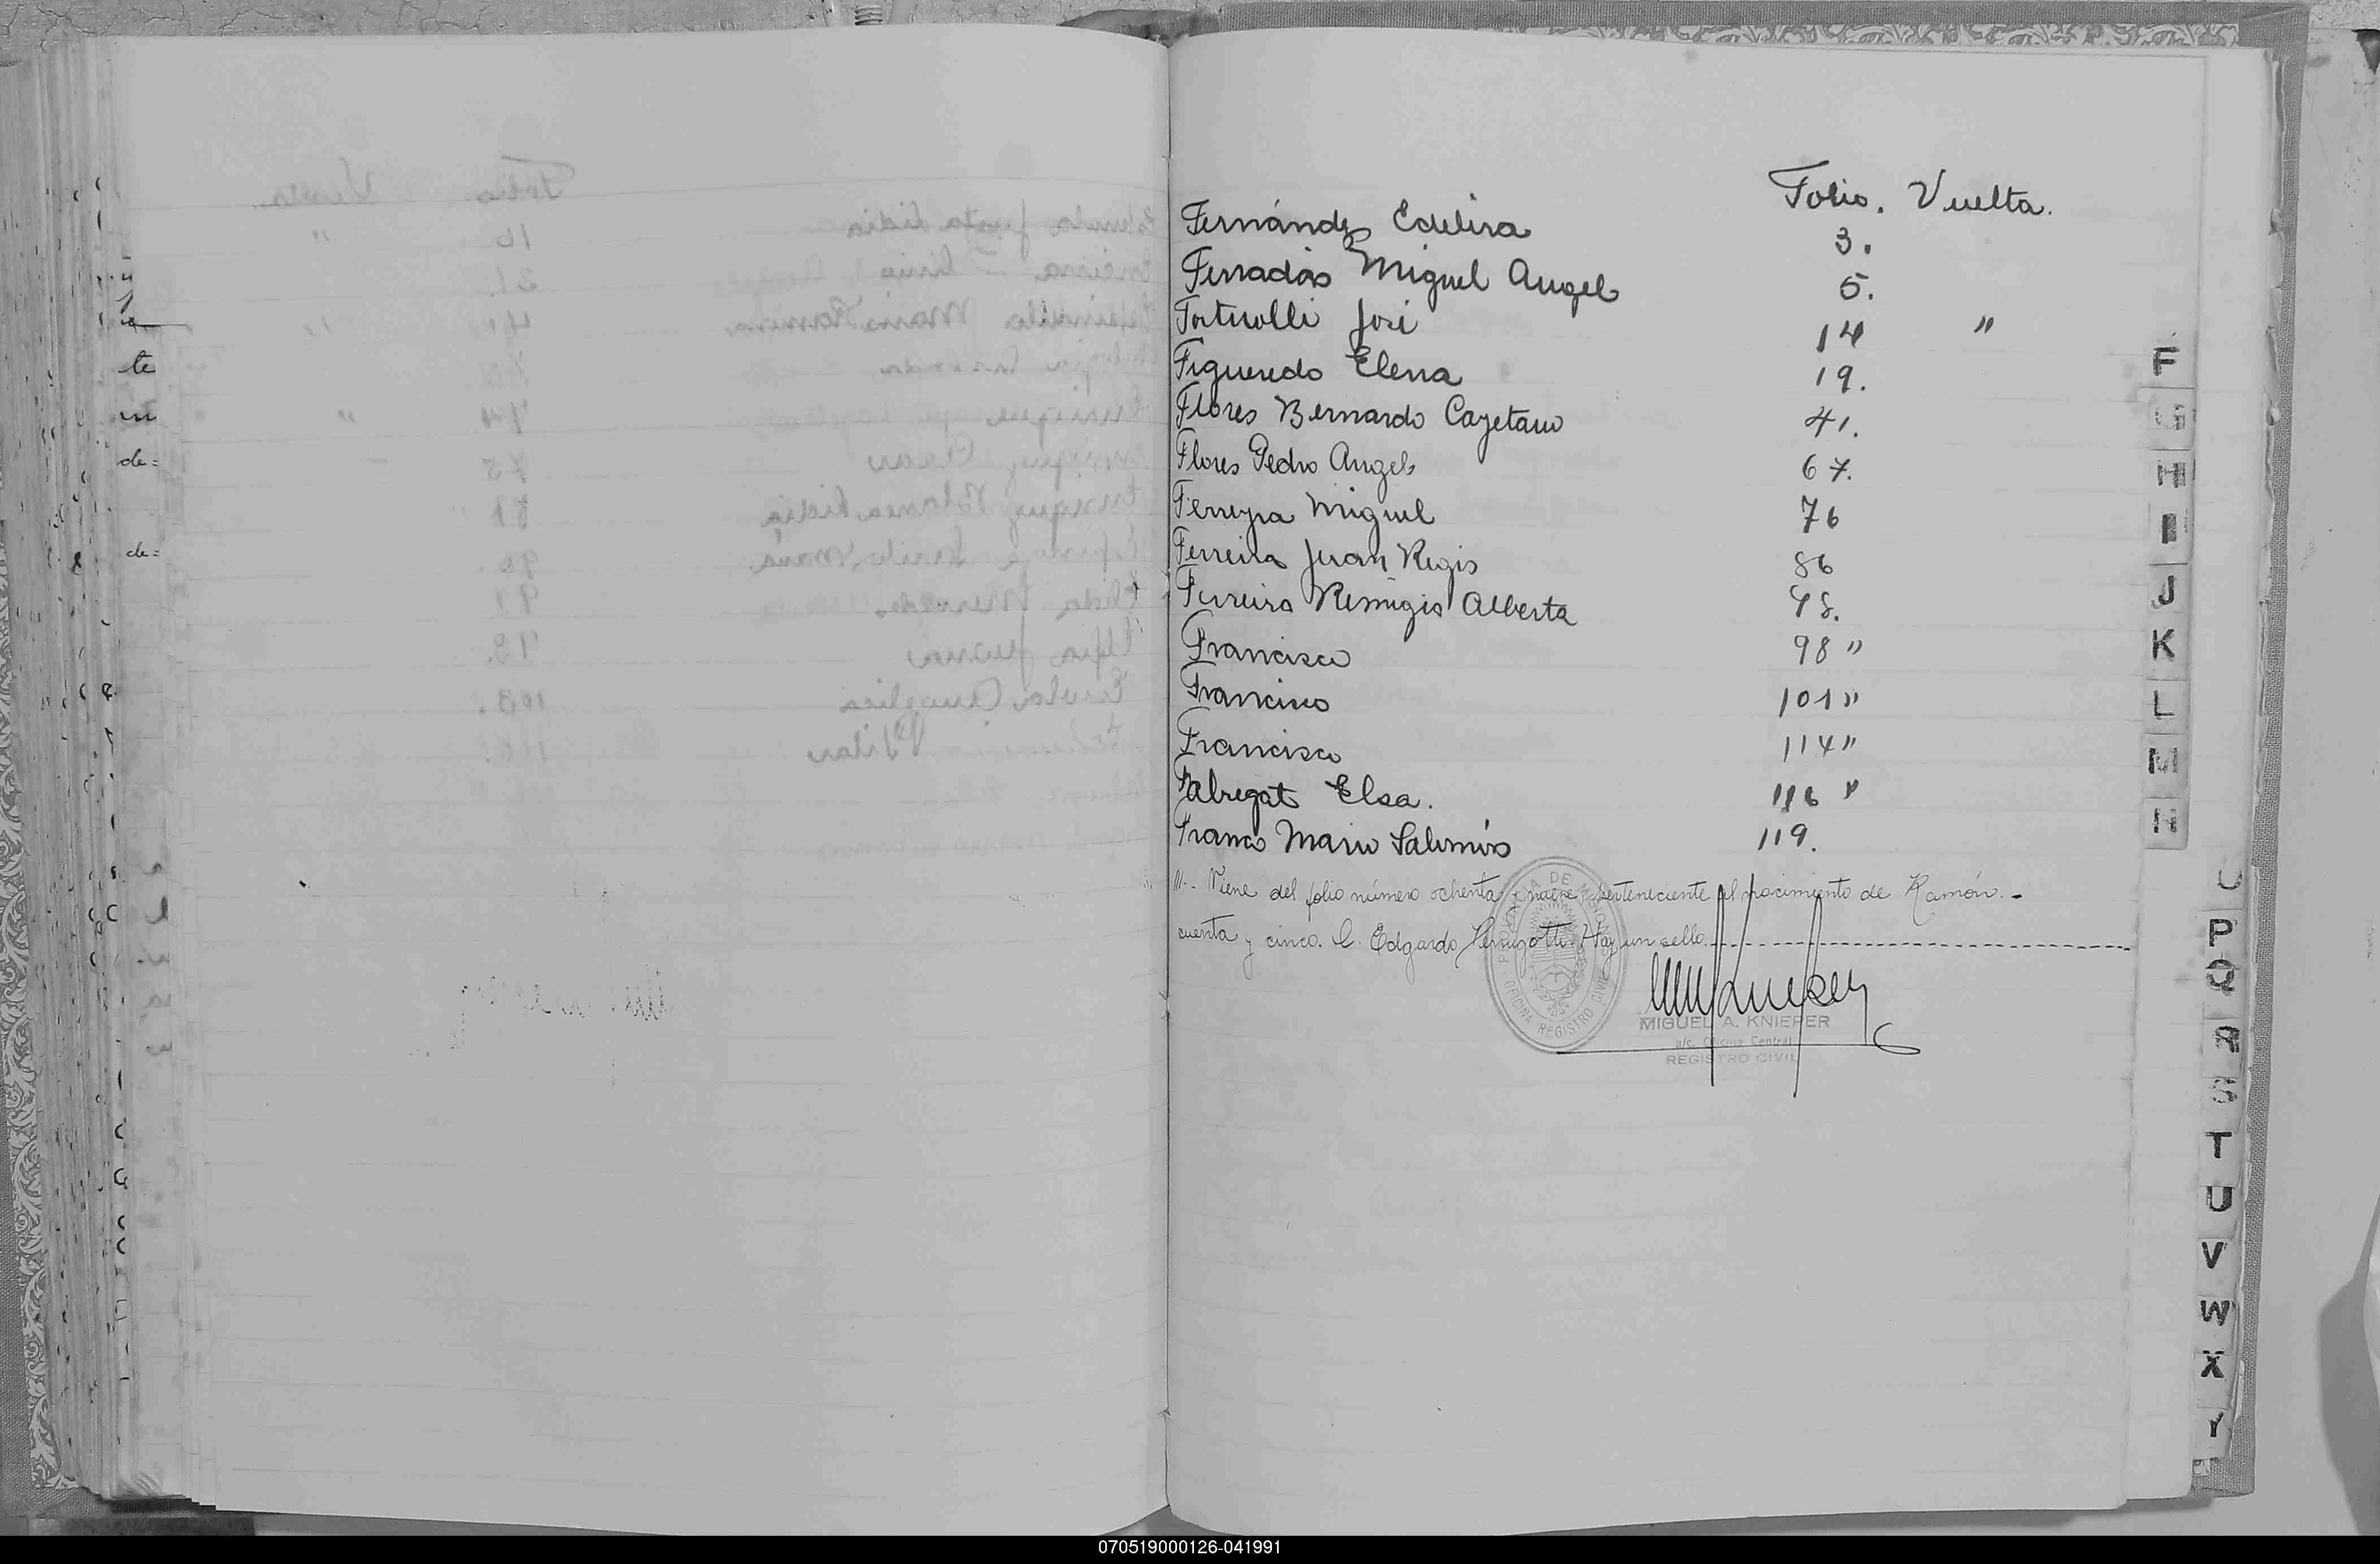 Folio. Vuelta.
Fernández Edelira 3.
Ferradás Miguel Angel 5.
Fortuolli José 14 "
Figueredo Elena 19.
Flores Bernardo Cayetano 41.
Flores Pedro Angel 67.
Ferreyra Miguel 76
Ferreira Juan Regis 86
Ferreira Remigia Alberta 98.
Francisco 98 "
Francisco 101 "
Francisco 114 "
Fabregat Elsa. 116 "
Franco Mario Salomón 119.
///.- Viene del folio número ochenta y nueve perteneciente al nacimiento de Ramón.-
cuenta y cinco. C. Edgardo Hay un sello.
PROVINCIA DE MISIONES
OFICINA REGISTRO CIVIL
MIGUEL A. KNIEPER
a/c. Oficina Central
REGISTRO CIVIL
te
de=
de=
F
G
H
I
J
K
L
M
N
P
Q
R
S
T
U
V
W
X
Y
070519000126-041991